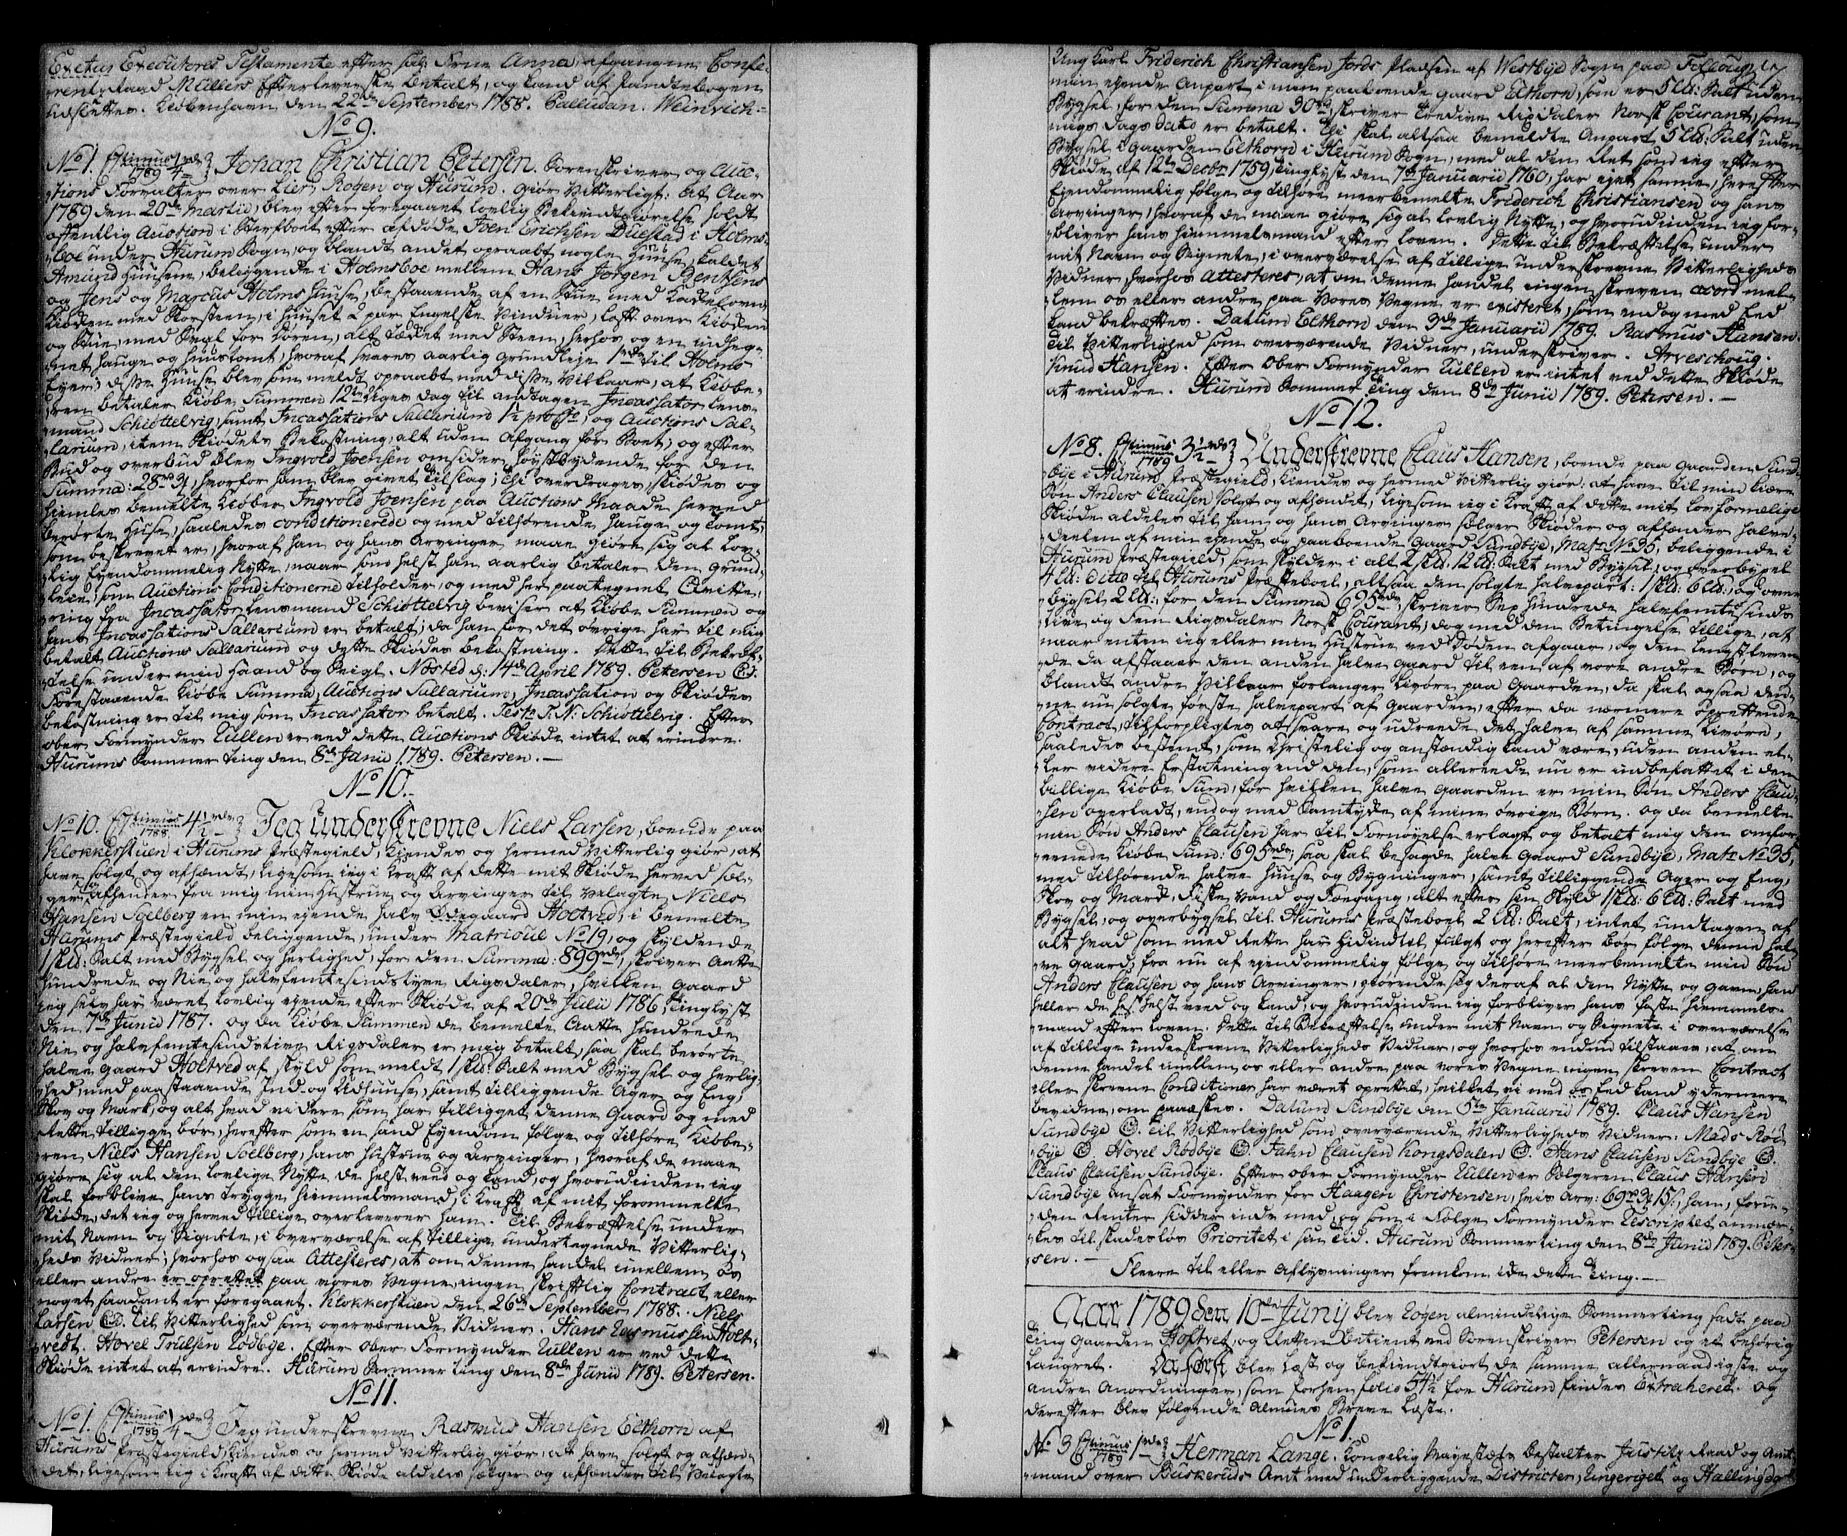 Exetus Executores Testamente efter sal. Frue Anna, afgangne Confe-
rentz Raad Müllers Efterleverske betalt, og kand af Pandtebogen
udslettes. Kiøbenhavn den 22de September 1788. Palludan. Weinrich.
No 9.
No 1. Estimius 1789 Johan Christian Petersen. Sorenskriver og Auc-
tions Forvalter over Lier, Rogen og Hurum. Giør Vitterligt: At Aar
1789 den 20de Martii, blev efter foregaaet lovlig Bekiendtgiørelse holdt
offentlig Auction i Sterfboet efter afdøde Joen Erichsen Dulstad i Holms-
boe under Hurum Sogn, og blandt andet opraabt nogle Huuse, kaldet
Amund Huusene, beliggende i Holmsboe mellem Hans Jørgen Bentsens
og Jens og Marcus Holms Huuse, bestaaende af en Stue med Kakelovn
Kiøken med Skorsteen, i Huuset 2 par Engelske Vinduer, Loft over Kiøken
og Stue, med Sval for Døren, alt tækket med Steen, herhos og en indheg-
net Hauge og Huustomt, hvoraf svares aarlig Grundleje 1 rd til Holms
Ejere; disse Huuse blev som meldt opraabt med disse Vilkaar, at Kiøbe-
ren betaler Kiøbe Summen 12te Uges dag til andtagen Incassator Lens-
mand Schiøttelvig, samt Incassations Sallarium 1½ pro Cto, og Auctions Sal-
larium, item Skiødets Bekostning, alt uden Afgang for Boet; og efter
Bud og overbud blev Ingvold Joensen omsider høystbydende for den
Summa: 28 rd 3 , hvorfor ham blev givet Tilslag; Thi overdrages, skiødes og
hiemles bemelte Kiøber Ingvold Joensen paa Auctions Maade herved
berørte Huse, saaledes conditionerede og med tilhørende Hauge og Tomt,
som beskrevet er, hvoraf han og hans Arvinger maae giøre sig al Lov-
lig Ejendommelig Nytte, naar som helst han aarlig betaler den Grund-
leie, som Auctions Conditionerne tilholder, og med her paategnet Qvitte-
ring fra Incassator Lensmand Schiøttelvig beviser at Kiøbe Summen og
samt Incassations Sallarium er betalt; da han for det øvrige har til mig
betalt Auctions Sallarium og dette Skiødes Bekostning. Dette til Bekræf-
telse under min Haand og Seigl. Nøsted d: 14de April 1789. Petersen
Forestaaende Kiøbe Summa, Auctions Sallarium, Incassation og Skiødes
bekostning er til mig som Incassator betalt. Test. T. N. Schiøttelvig. Efter
ober Formynder Rullen er ved dette Auctions Skiøde intet at erindre.
Hurums Sommer Ting den 8de Junii 1789. Petersen.
No 10.
No 10. Estimius 1788 4½ rd Jeg underskrevne Niels Larsen, boende paa
Klokkerstuen i Hurums Præstegield, Kiendes og hermed Vitterlig giør, at
have solgt og afhændt, ligesom ieg i Kraft af dette mit Skiøde herved sæl-
ger og afhender fra mig min Hustrue og Arvinger til Velagte Niels
Hansen Soelberg en min ejende halv Ødegaard Holtved, i bemelte
Hurums Præstegield beliggende, under Matricul No 19, og skyldende
1 skd: Salt med Bygsel og Herlighed, for den Summa: 899 rd, skriver Aatte
Hundrede og Nie og halvfemtesindstyve Rigsdaler, hvilken Gaard
jeg selv har været lovlig ejende efter Skiøde af 20de Julii 1786, Tinglyst
den 7de Junii 1787. og da Kiøbe Summen de bemelte Aatte Hundrede
Nie og halvfemtesindstyve Rigsdaler er mig betalt, saa skal berørte
halve Gaard Holtved af skyld som meldt 1 skd: Salt med Bygsel og Herlig-
hed, med paastaaende Ind- og Udhuuse, samt tilliggende Ager og Eng,
Skov og Mark, og alt hvad videre som har tilligget denne Gaard og med
Rette tilligge bør, herefter som en sand Ejendom følge og tilhøre Kiøbe-
ren Niels Hansen Soelberg, hans Hustrue og Arvinger, hvoraf de maae
giøre sig al den lovlige Nytte de helst veed og kand, og hvorudinden ieg
skal forblive hans trygge Hiemmelsmand, i Kraft af mit forommelte
Skiøde, det ieg og herved tillige overleverer ham. Til Bekræftelse under
mit Navn og Signete, i overværelse af tillige undertegnede Vitterlig-
heds Vidner; hvorhos ogsaa Attesteres, at om denne handel imellem os
eller andre er oprettet paa vores Vegne, ingen skriftlig Contract eller
noget saadant er foregaaet. Klokkerstuen den 26de September 1788. Niels
Larsen Til Vitterlighed som overværende Vidner. Hans Rasmussen Holt-
vedt. Hovel Trulsen Rødbye. Efter Ober Formynder Rullen er ved dette
Skiøde intet at erindre. Hurum Sommer Ting den 8de Junii 1789. Petersen.
No 11.
No 1. Estimius 1789 Jeg underskrevne Rasmus Hansen Elthorn af
Hurums Præstegield, Kiendes og hermed Vitterlig giør, at have solgt og afhæn-
det, ligesom ieg i Kraft af dette Skiøde aldeles sælger og afhænder til Velagte
Ung Karl Friderich Christiansen Jords Pladsen af Westbye Sogn paa Follough
min ejende Anpart i min paaboende Gaard Elthorn, som er 5 Ld: Salt uden
Bygsel, for den Summa 30 rd, skriver Tredive Rixdaler Norsk Courant, som
mig Dags dato er betalt. Thi skal altsaa bemeldte Anpart 5 Ld: Salt uden
Bygsel i Gaarden Elthorn i Hurum Sogn, med al den Ret som ieg efter
Skiøde af 12te Decbr 1759, Tinglyst den 7de Januarii 1760, har ejet samme, herefter
Ejendommelig følge og tilhøre meerbemelte Friderich Christiansen og hans
Arvinger, hvoraf de maae giøre sig al lovlig Nytte, og hvorudinden ieg for-
bliver hans Hiemmelsmand efter Loven. Dette til Bekræftelse under
mit Navn og Signete, i overværelse af tillige underskrevne Vitterligheds
Vidner, hvorhos Attesteres, at om denne Handel ingen skreven Acord mel-
lem os eller andre paa vores Vegne er existeret, som endog med Eed
kand bekræftes. Datum Elthorn den 3de Januarii 1789. Rasmus Hansen
Til Vitterlighed som overværende Vidner, underskriver. Arveschoug.
Knud Hansen. Efter Ober Formynder Rullen er intet ved dette Skiøde
at erindre. Hurum Sommer Ting den 8de Junii 1789. Petersen.
No 12.
No 8. Estimius 1789 3½ rd Underskrevne Claus Hansen, boende paa Gaarden Sund-
bye i Hurum Præstegield, Kiendes og hermed Vitterlig giør, at have til min kiære
Søn Anders Clausen solgt og afhændet, ligesom ieg i Kraft af dette mit lovformelige
Skiøde aldeles til ham og hans Arvinger sælger Skiøder og afhænder halve-
deelen af min ejende og paaboende Gaard Sundbye, Matr: No 35, beliggende i
Hurum Præstegield, som skylder i alt 2 skd. 12 Ld: Salt med Bygsel, og overbygsel
4 Ld: ditto til Hurums Præsteboel, altsaa den solgte halvepart: 1 skd 6 Ld:, og over
bygsel 2 Ld:, for den Summa 695 rd, skriver Sex hundrede halvfemtesinds
tive og Fem Rigsdaler Norsk Courant; dog med den Betingelse tillige, at
naar enten ieg eller min Hustrue ved Døden afgaar, og den Længstleven-
de da afstaaer den anden halve Gaard til een af vore andre Børn, og
blandt andre Vilkaar forlanger Livøre paa Gaarden, da skal ogsaa den-
ne nu solgte første halvepart af Gaarden, efter da nærmere oprettende
Contract, tilforpligtes at svare og udreede det halve af samme Livøre,
saaledes bestemt, som Christelig og anstændig kand være, uden anden el-
ler videre Erstatning end den, som allerede nu er indbefattet i den
billige Kiøbe Sum, for hvilken halve Gaarden er min Søn Anders Clau-
sen overladt, endog med Samtykke af mine øvrige Børn. og da bemelte
min Søn Anders Clausen har til Fornøyelse erlagt og betalt mig den omfor-
meente Kiøbe Sum: 695 rd, saa skal besagde halve Gaard Sundbye, Matr: No 35,
med tilhørende halve Huuse og Bygninger, samt tilliggende Ager og Eng,
Skov og Mark, Fiske, Vand og Fægang, alt efter sin Skyld 1 skd: 6 Ld: Salt med
Bygsel, og overbygsel til Hurums Præsteboel 2 Ld: Salt, intet undtagen af
alt hvad som med Rette har hidindtil fulgt og herefter bør følge denne hal-
ve Gaard, fra nu af ejendommelig følge og tilhøre meerbemelte min Søn
Anders Clausen og hans Arvinger, giørende sig deraf al den Nytte og Gavn, han
heller de helst veed og kand, og hvorudinden ieg forbliver hans faste Hiemmels-
mand efter Loven. Dette til Bekræftelse under mit Navn og Signete i overværelse
af tillige underskrevne Vitterligheds Vidner, og hvorhos endnu tilstaaes, at om
denne Handel imellem os eller andre paa vores Vegne ingen skreven Contract
eller skrevne Conditioner har været oprettet, hvilket vi med os Eed kand ydermere
bevidne, om paaæskes. Datum Sundbye den 5te Januarii 1789. Claus Hansen
Sundbye Til Vitterlighed som overværende Vitterligheds Vidner: Mads Rød-
bye Hovel Rødbye Jahn Clausen Kongsdalen Hans Clausen Sundbye
Claus Clausen Sundbye. Efter ober Formynder Rullen er Sælgeren Claus Hansen
Sundbye ansat Formynder for Haagen Christensen, hvis Arv: 69 rd 3 15 s, ham, forin-
den Renter sidder inde med, og som i Følge Formynder Rescriptet anmær-
kes til skadesløs Prioritet i sin tid. Hurum Sommerting den 8de Junii 1789. Peter-
sen.
Fleere til eller aflysninger fremkom ide dette Ting.
Aar 1789 den 10de Junij blev Rogen almindelige Sommerting sadt paa
Ting Gaarden Hoftvet, og Retten betient ved Sorenskriver Petersen og et behørig
Laugret. Da først blev Læst og bekiendtgiort de samme allernaadigste og
andre Anordninger, som forhen folio 54½ for Hurum findes Extraheret. og
derefter blev følgende Almues Breve læste.
No 1.
No 3 Estimius 1789 Herman Lange. Kongelig Mayestæts bestalter Justitz Raad og Amt-
mand over Buskeruds Amt med underliggende Districter, Ringeriget og Hallingdal